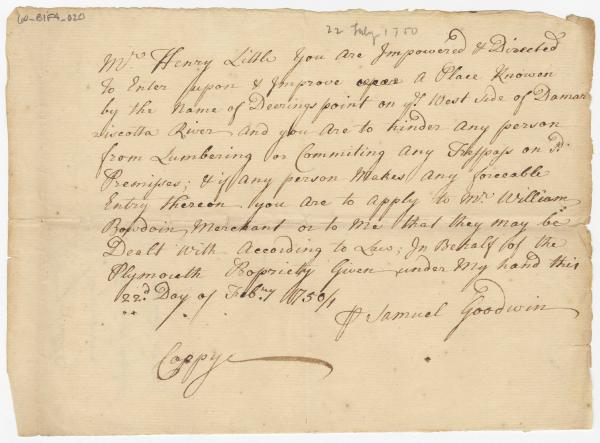 60-B1F4-020
22 Feby 1750
Mr. Henry Little You Are Impowered & Directed
To Enter upon & Improve upon A Place Knowen
by the Name of Deerings point on ye West side of Damar
riscotta River And you are to hinder Any person
from Lumbering or Commiting Any Trespass on sd.
Premisses; & if any person Makes Any forceable
Entry thereon you are to Apply to Mr William
Bowdoin, Merchant or to Me that they may be
Dealt With According to Law; In Behalf of the
Plymouth Propriety Given under My hand this
22d. Day of Febry 1750/1
Samuel Goodwin
Coppye